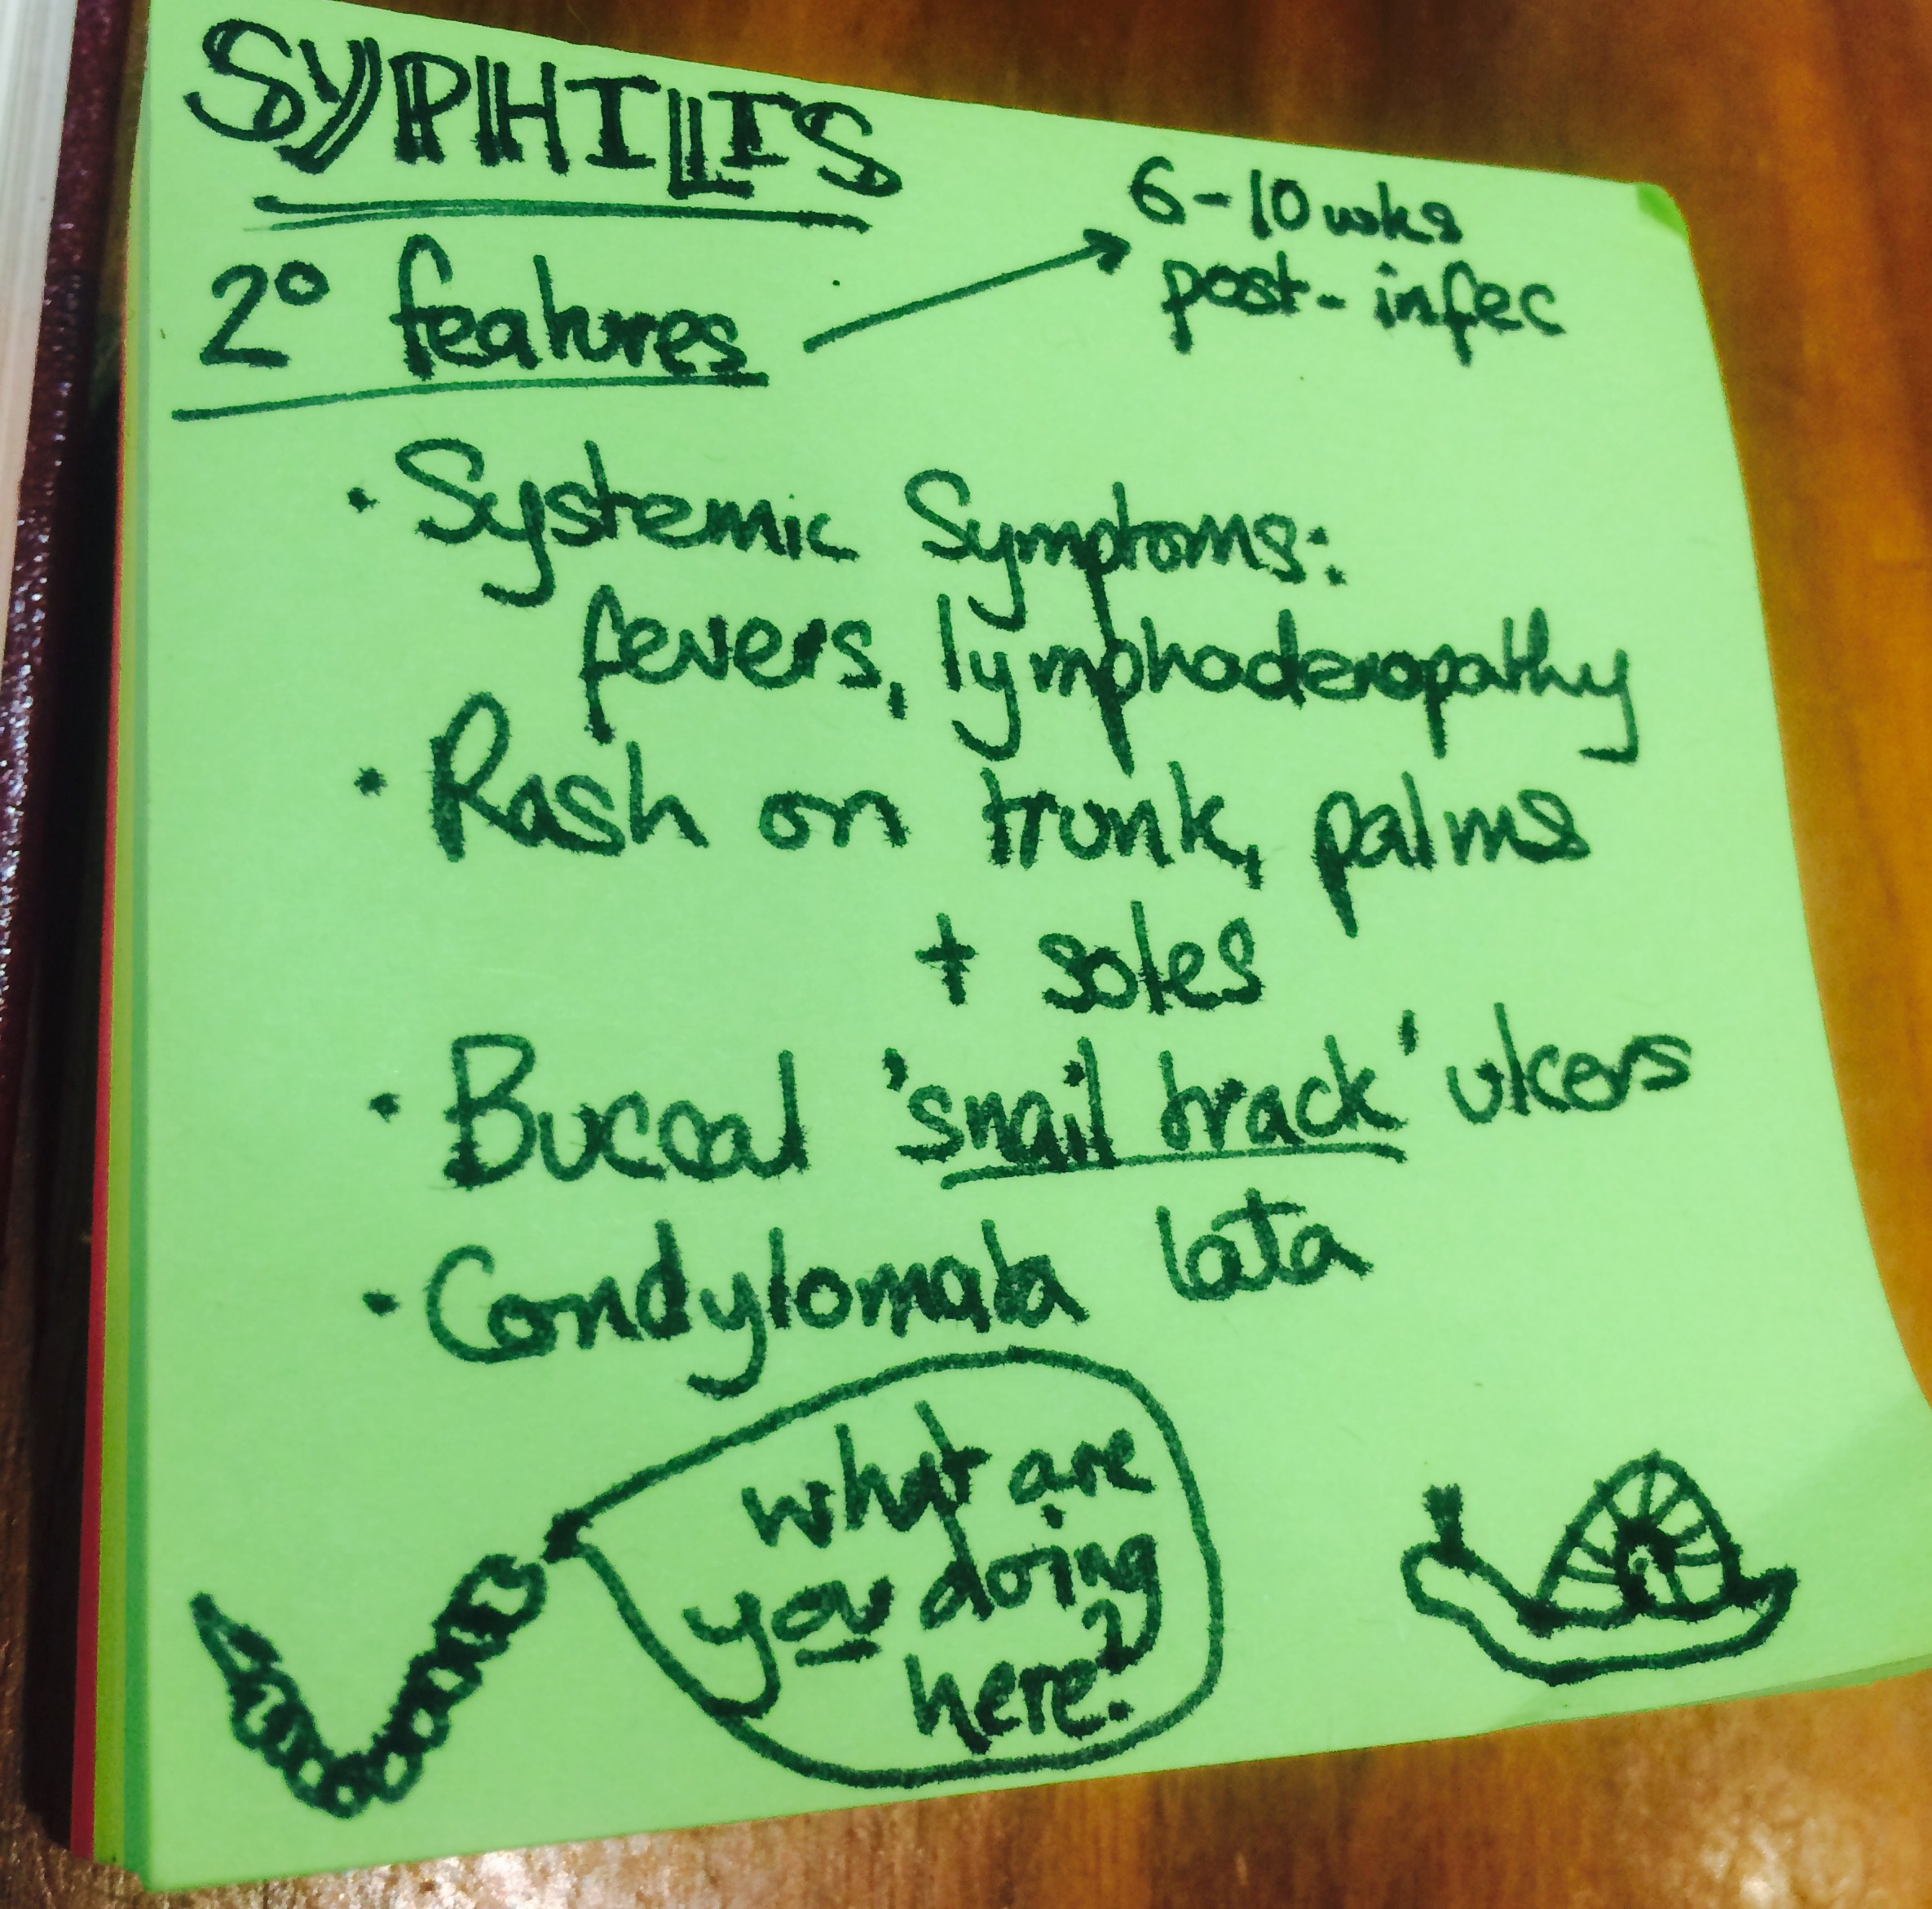 SYPHILIS
2° features
6-10 wks
post-infec
• Systemic Symptoms:
fevers, lymphadenopathy
• Rash on trunk, palms
+ soles
• Buccal 'snail track' ulcers
• Condylomata lata
what are
you doing
here?